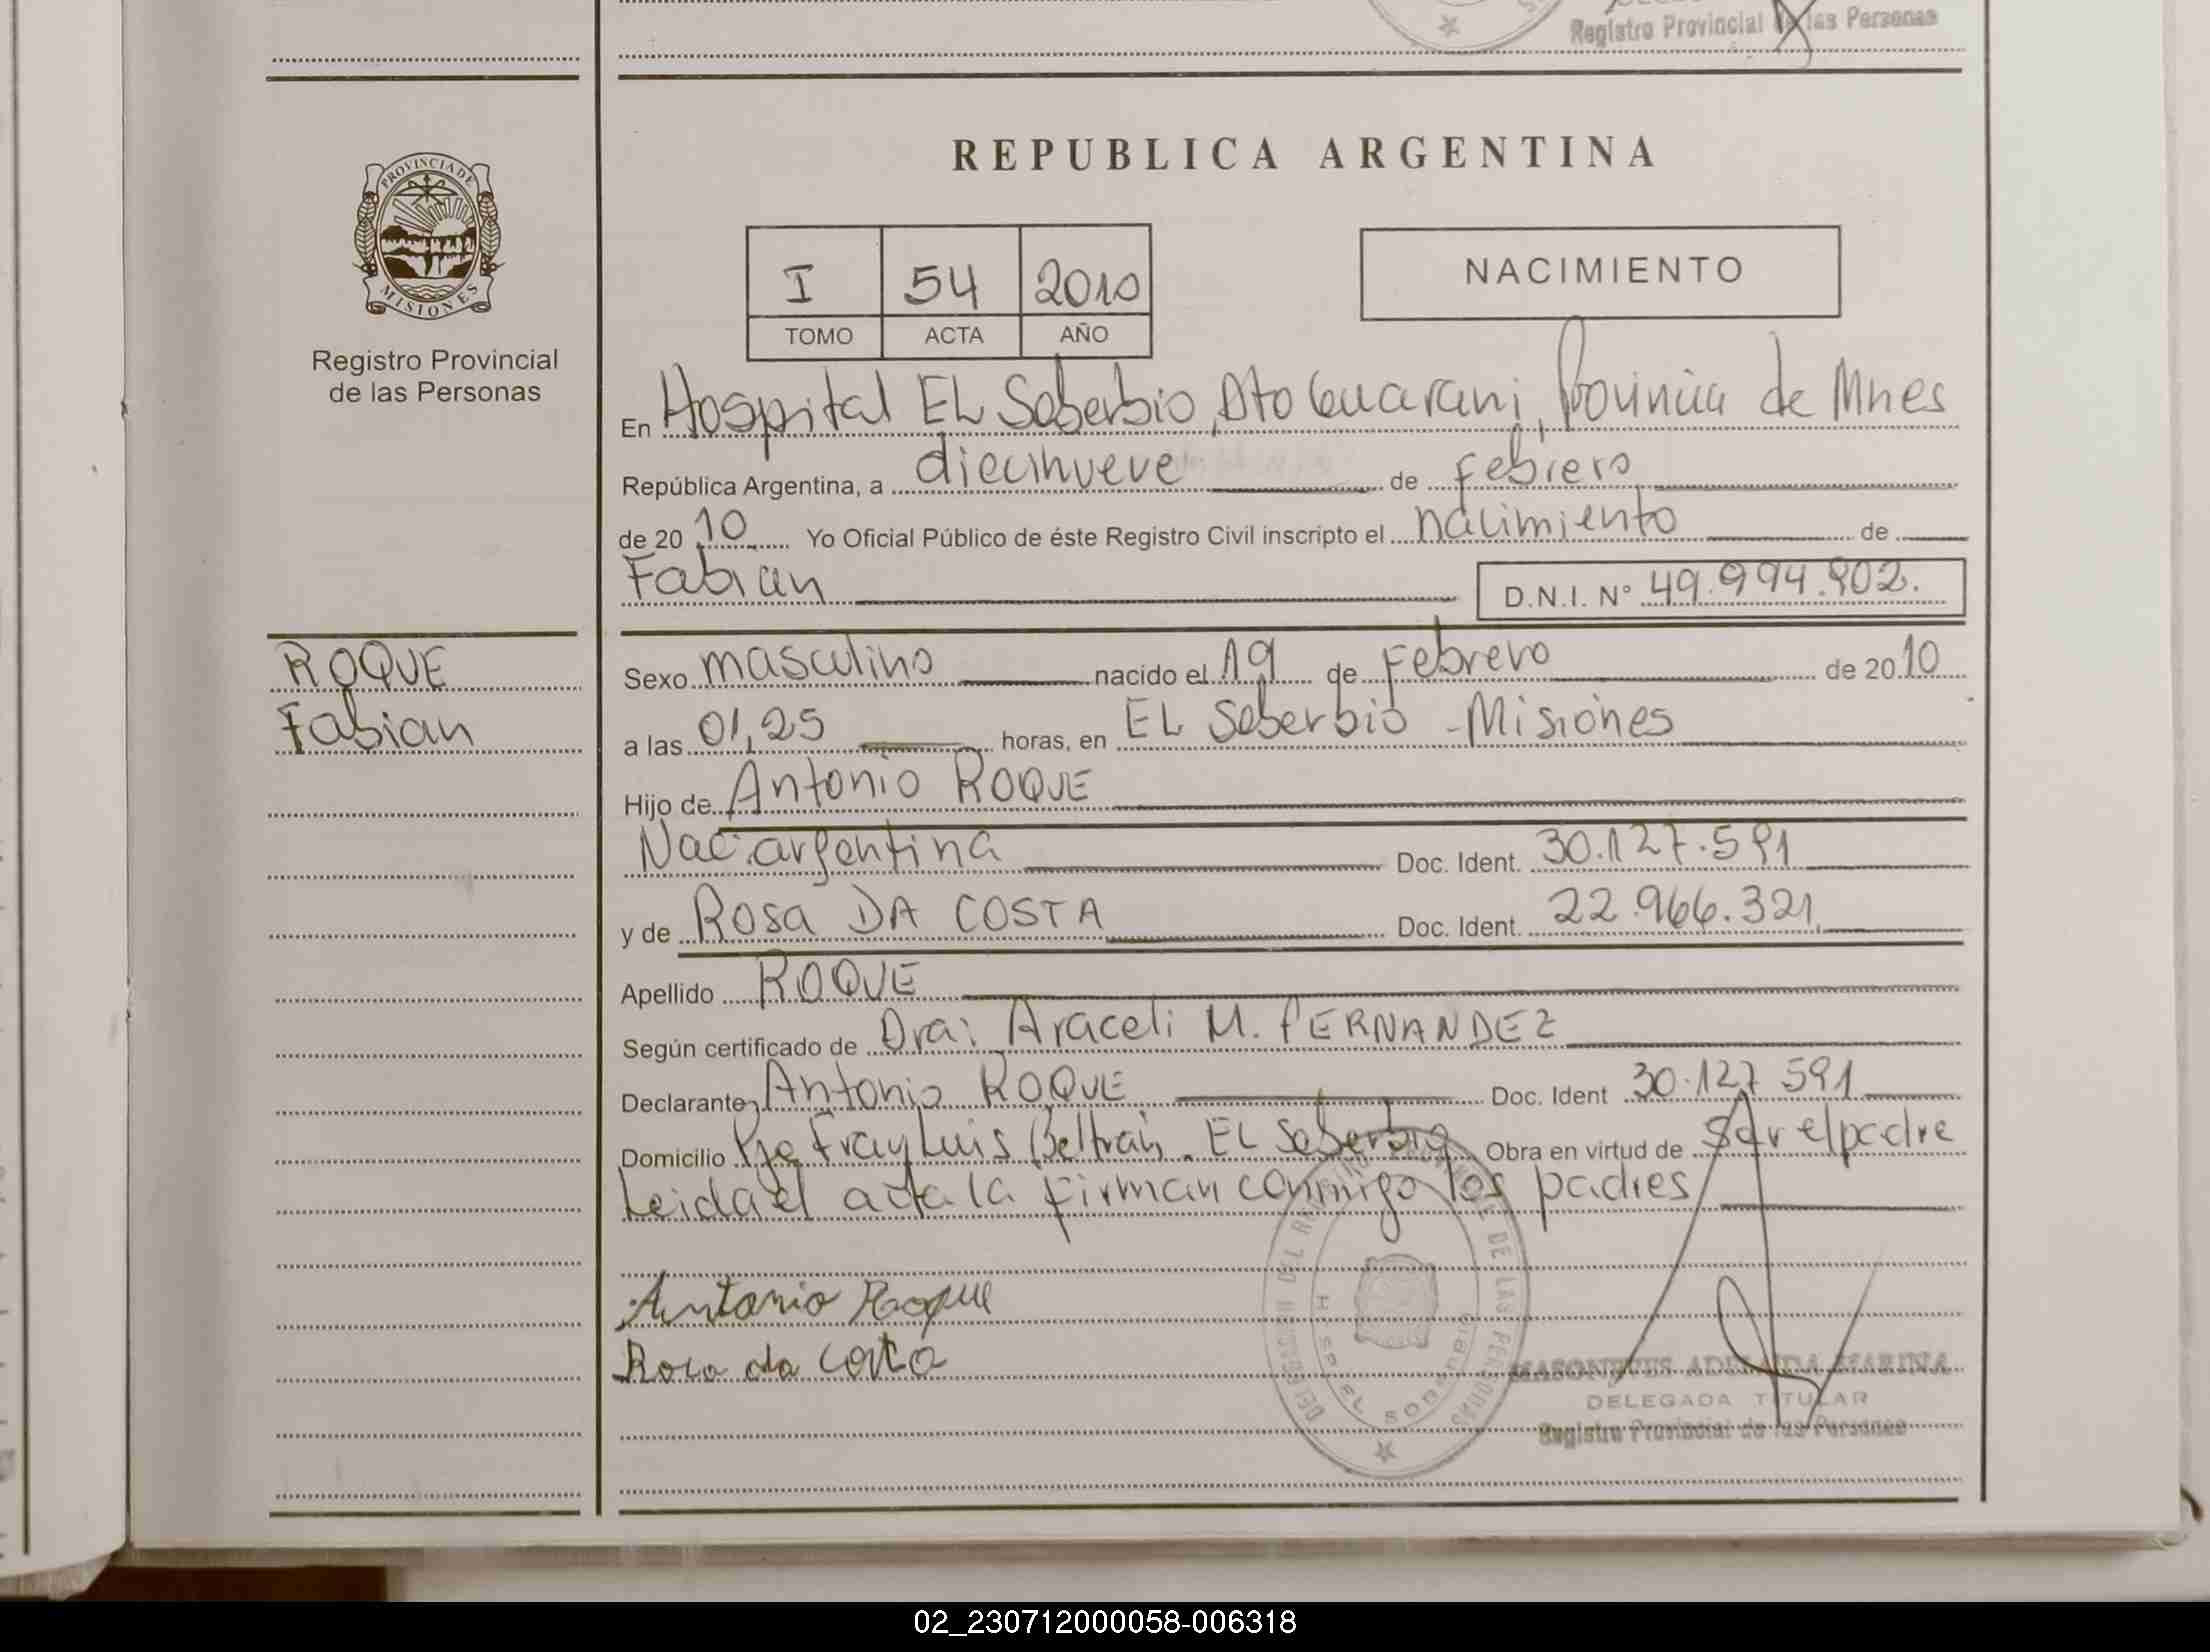 Registro Provincial de las Personas
PROVINCIA DE
MISIONES
Registro Provincial
de las Personas
REPUBLICA ARGENTINA
I 54 2010
TOMO ACTA AÑO
NACIMIENTO
En Hospital EL Soberbio, Dto Guarani, Provincia de Mnes
República Argentina, a diecinueve de Febrero
de 20 10 Yo Oficial Público de éste Registro Civil inscripto el nacimiento de
Fabian D.N.I. N° 49.994.902.
ROQUE
Fabian
Sexo masculino nacido el 19 de Febrero de 20 10
a las 01,25 horas, en EL Soberbio - Misiones
Hijo de Antonio ROQUE
Nac. argentina Doc. Ident. 30.127.591
y de Rosa DA COSTA Doc. Ident. 22.966.321
Apellido ROQUE
Según certificado de Dra: Araceli M. FERNANDEZ
Declarante Antonio ROQUE Doc. Ident 30.127.591
Domicilio Pje Fray Luis Beltrán. EL Soberbio Obra en virtud de ser el padre
Leida el acta la firman conmigo los padres
Antonio Roque
Rosa da Costa
DE LAS PERSONAS
EL SOBERBIO
ADELAIDA MARINA
DELEGADA TITULAR
Registro Provincial de las Personas
02_230712000058-006318